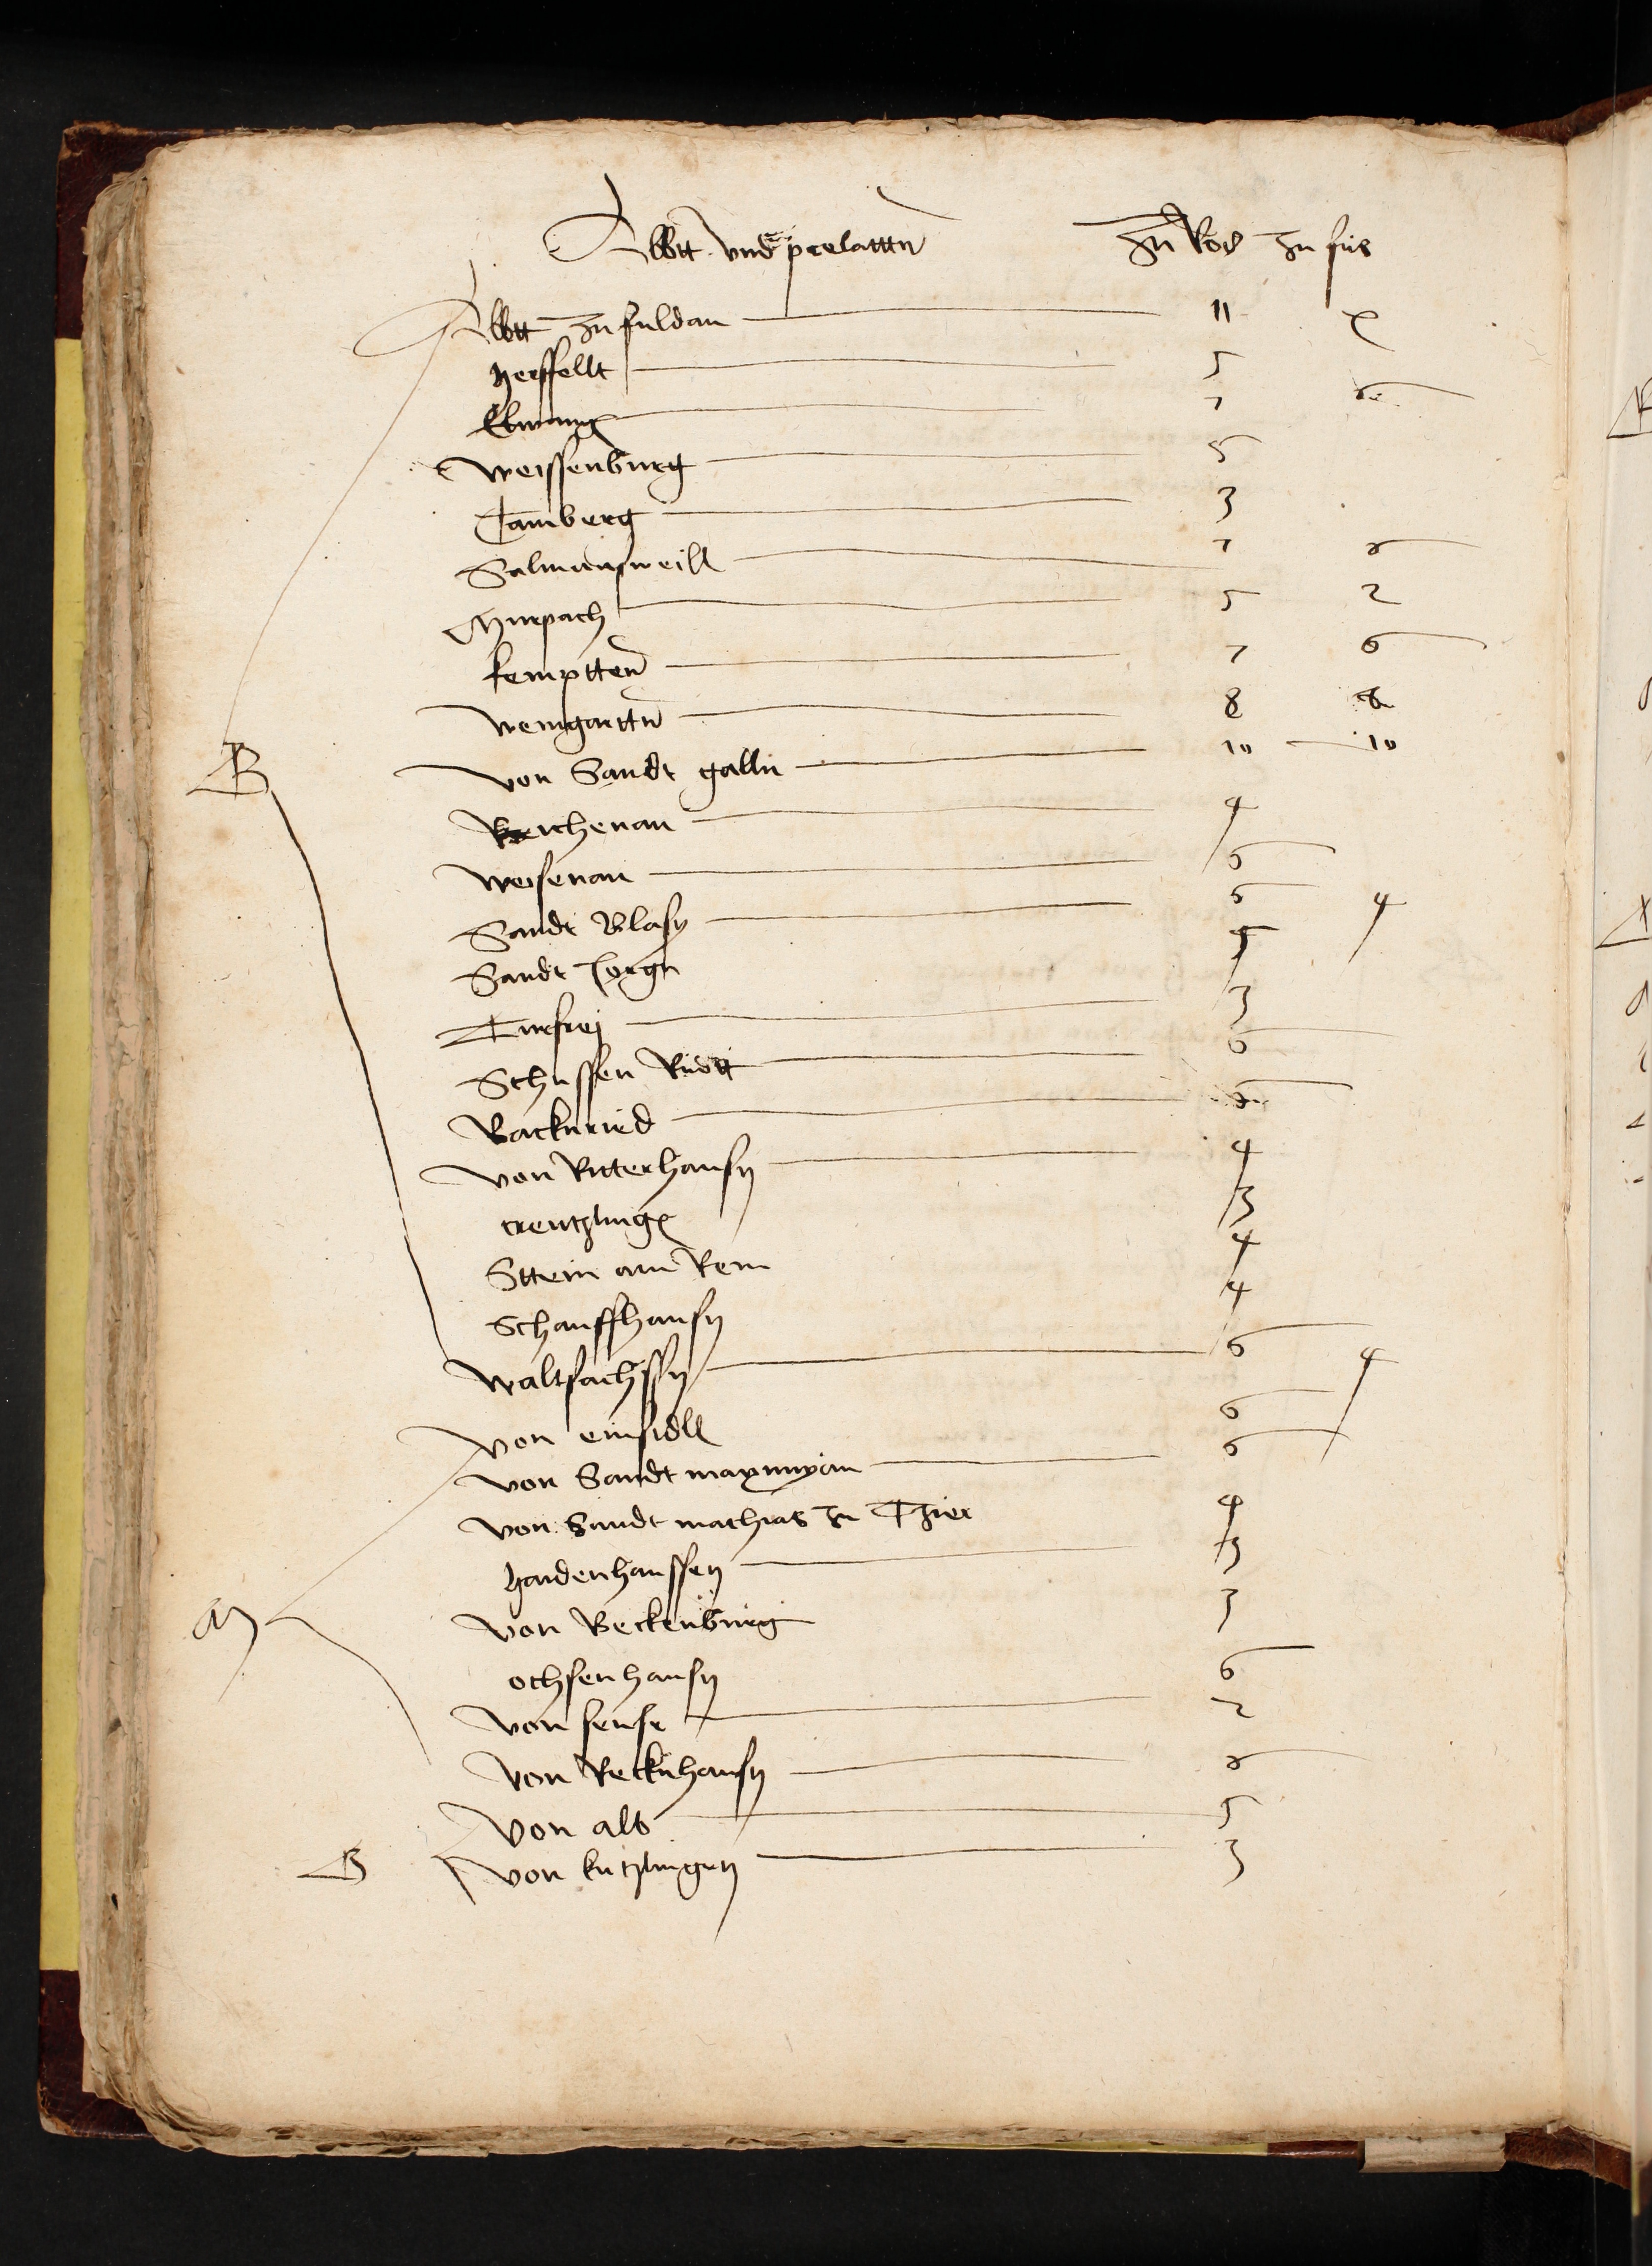 Abtt vnd prelatttn zu Ros zu fus
Abtt zu fuldau 11 x
herssfellt 5
Elwang 7
Weissenburg 5
Camberg 3
Salmansweill 7 6
Murpach 5 2
kemptten 7 6
Weingarttn 8 8
von Sandt galln 10 10
Reichenau 4
Weisenau 6
Sandt Blasy 6 4
Sandt Jorgn 5
3
Schussen Riedt 6
Rockenried
von Ritterhausn 4
creutzling 3
Sttein am Rein 4
Schauffhausn 4
Waltsachssn 6 4
von einsidll 6
von Sandt maximyan 6
von Sandt mathias zu Thier 4
haidenhaussen 3
von Beckenburg 3
ochsenhausn 6
von sense 2
von Recknhausn 6
von alb 5
B von kutzlingen 3